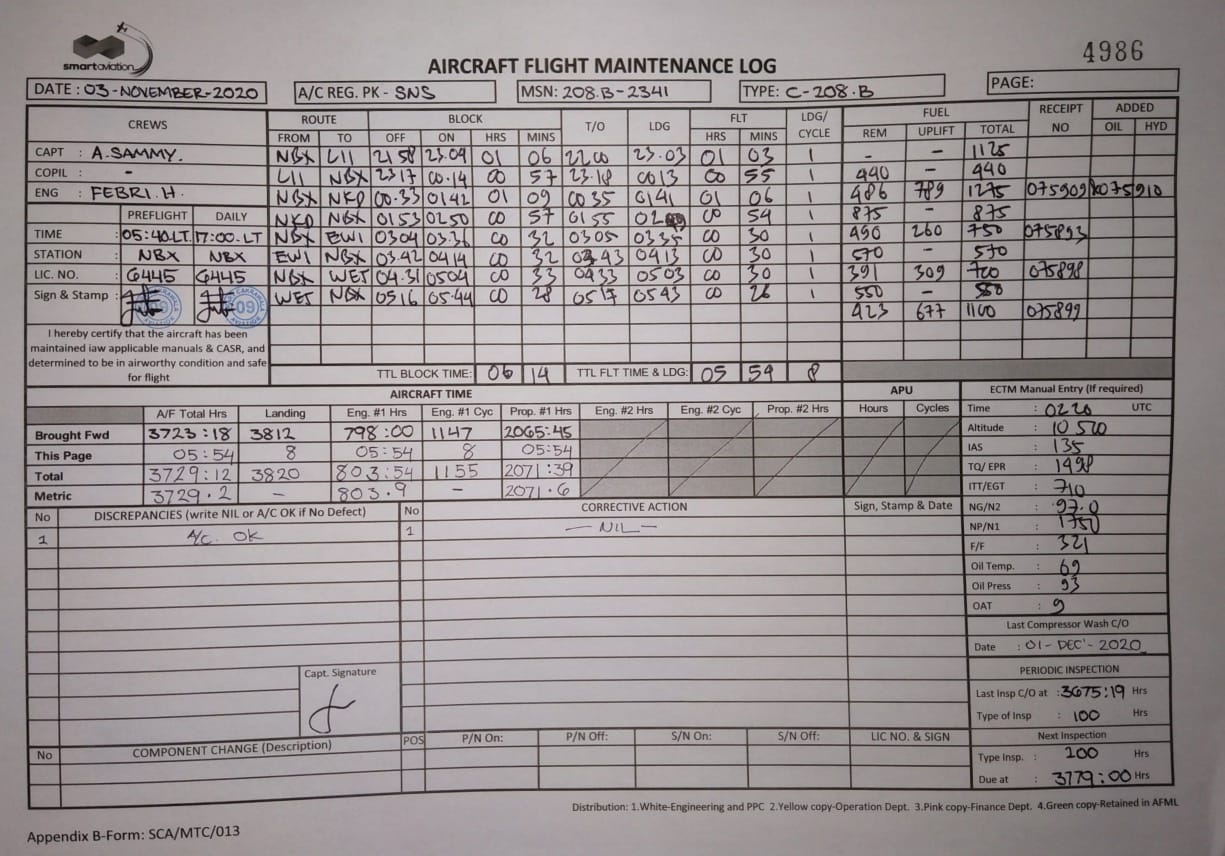 smartaviation
4986
AIRCRAFT FLIGHT MAINTENANCE LOG
DATE : 03-NOVEMBER-2020 A/C REG. PK - SNS MSN: 208.B-2341 TYPE: C-208.B PAGE:
CREWS ROUTE BLOCK T/O LDG FLT LDG/ CYCLE FUEL RECEIPT NO ADDED
FROM TO OFF ON HRS MINS HRS MINS REM UPLIFT TOTAL OIL HYD
CAPT : A.SAMMY. NBX LII 2158 23.04 01 06 2200 23.03 01 03 1 - - 1125
COPIL : - LII NBX 2317 00.14 00 57 23.18 0013 00 55 1 440 - 440
ENG : FEBRI.H. NBX NKD 00.33 0142 01 09 0035 0141 01 06 1 486 789 1275 075909 075910
PREFLIGHT DAILY NKD NBX 0153 0250 00 57 0155 00 54 1 875 - 875
TIME : 05:40.LT 17:00.LT NBX EWI 0304 03.36 00 32 0305 0335 00 30 1 490 260 750 075893
STATION : NBX NBX EWI NBX 03.42 0414 00 32 0343 0413 00 30 1 570 - 570
LIC. NO. : 6445 6445 NBX WET 04.31 0504 00 33 0433 0503 00 30 1 391 309 700 075898
Sign & Stamp : WET NBX 0516 05.44 00 28 0517 0543 00 26 1 550 - 550
423 677 1100 075899
I hereby certify that the aircraft has been
maintained iaw applicable manuals & CASR, and
determined to be in airworthy condition and safe
for flight
TTL BLOCK TIME: 06 14 TTL FLT TIME & LDG: 05 54 8
AIRCRAFT TIME APU ECTM Manual Entry (If required)
A/F Total Hrs Landing Eng. #1 Hrs Eng. #1 Cyc Prop. #1 Hrs Eng. #2 Hrs Eng. #2 Cyc Prop. #2 Hrs Hours Cycles Time : 0220 UTC
Brought Fwd 3723:18 3812 798:00 1147 2065:45 Altitude : 10 500
This Page 05:54 8 05:54 8 05:54 IAS : 135
Total 3729:12 3820 803:54 1155 2071:39 TQ/ EPR : 1498
Metric 3729.2 - 803.9 - 2071.6 ITT/EGT : 710
No DISCREPANCIES (write NIL or A/C OK if No Defect) No CORRECTIVE ACTION Sign, Stamp & Date NG/N2 : 97.0
1 A/C. OK 1 — NIL — NP/N1 : 1750
F/F : 321
Oil Temp. : 69
Oil Press : 93
OAT : 9
Last Compressor Wash C/O
Date : 01- DEC'- 2020
PERIODIC INSPECTION
Capt. Signature
Last Insp C/O at : 3675:19 Hrs
Type of Insp : 100 Hrs
No COMPONENT CHANGE (Description) POS P/N On: P/N Off: S/N On: S/N Off: LIC NO. & SIGN Next Inspection
Type Insp. : 200 Hrs
Due at : 3779:00 Hrs
Distribution: 1.White-Engineering and PPC 2.Yellow copy-Operation Dept. 3.Pink copy-Finance Dept. 4.Green copy-Retained in AFML
Appendix B-Form: SCA/MTC/013